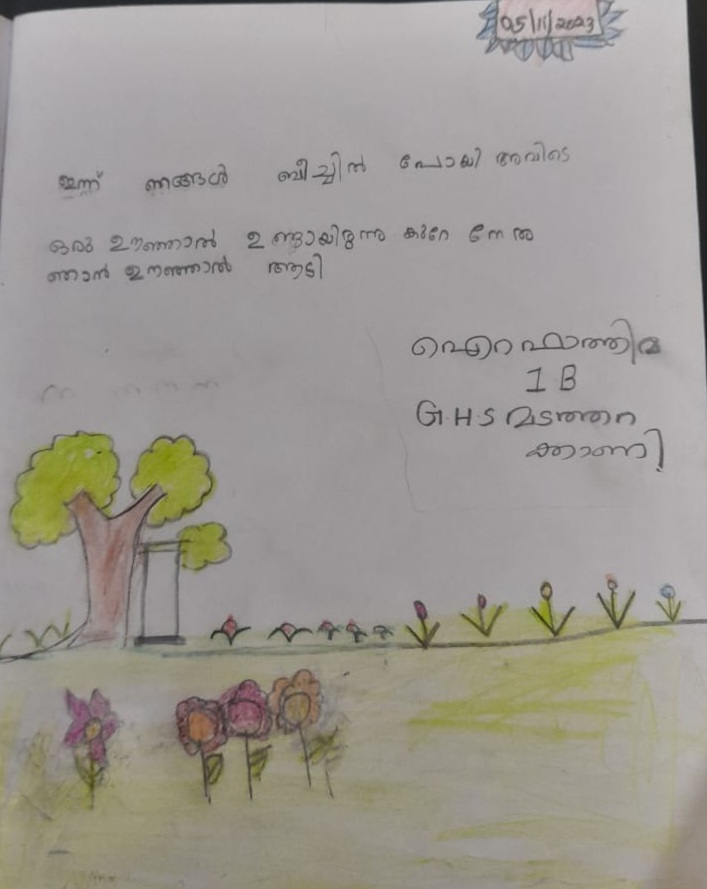 05/11/2023
ഇന്ന് ഞങ്ങൾ ബീച്ചിൽ പോയി അവിടെ
ഒരു ഊഞ്ഞാൽ ഉണ്ടായിരുന്നു കുറേ നേരം
ഞാൻ ഊഞ്ഞാൽ ആടി
ഐറ ഫാത്തിമ
1 B
G.H.S മടത്തറ
ക്കാണി